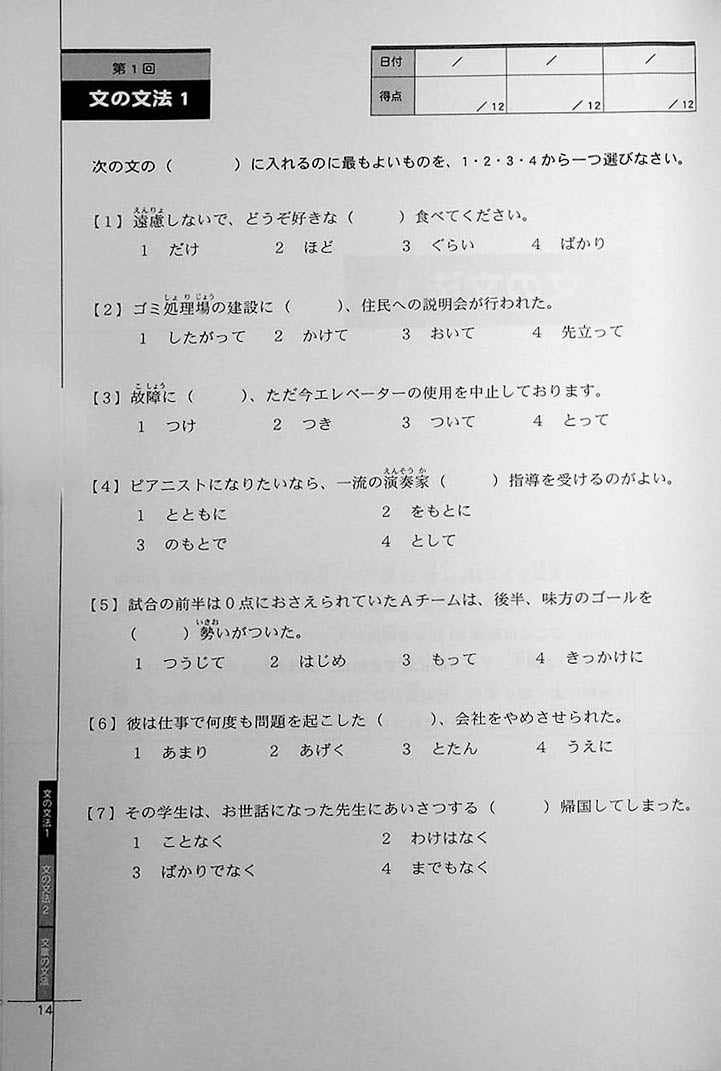 第1回
文の文法1
日付 / / /
得点 /12 /12 /12
次の文の（　　　）に入れるのに最もよいものを、1・2・3・4から一つ選びなさい。
えんりょ
【1】遠慮しないで、どうぞ好きな（　　　）食べてください。
1 だけ 2 ほど 3 ぐらい 4 ばかり
しょりじょう
【2】ゴミ処理場の建設に（　　　）、住民への説明会が行われた。
1 したがって 2 かけて 3 おいて 4 先立って
こしょう
【3】故障に（　　　）、ただ今エレベーターの使用を中止しております。
1 つけ 2 つき 3 ついて 4 とって
えんそうか
【4】ピアニストになりたいなら、一流の演奏家（　　　）指導を受けるのがよい。
1 とともに 2 をもとに
3 のもとで 4 として
【5】試合の前半は0点におさえられていたAチームは、後半、味方のゴールを
いきお
（　　　）勢いがついた。
1 つうじて 2 はじめ 3 もって 4 きっかけに
【6】彼は仕事で何度も問題を起こした（　　　）、会社をやめさせられた。
1 あまり 2 あげく 3 とたん 4 うえに
【7】その学生は、お世話になった先生にあいさつする（　　　）帰国してしまった。
1 ことなく 2 わけはなく
3 ばかりでなく 4 までもなく
文の文法1
文の文法2
文章の文法
14